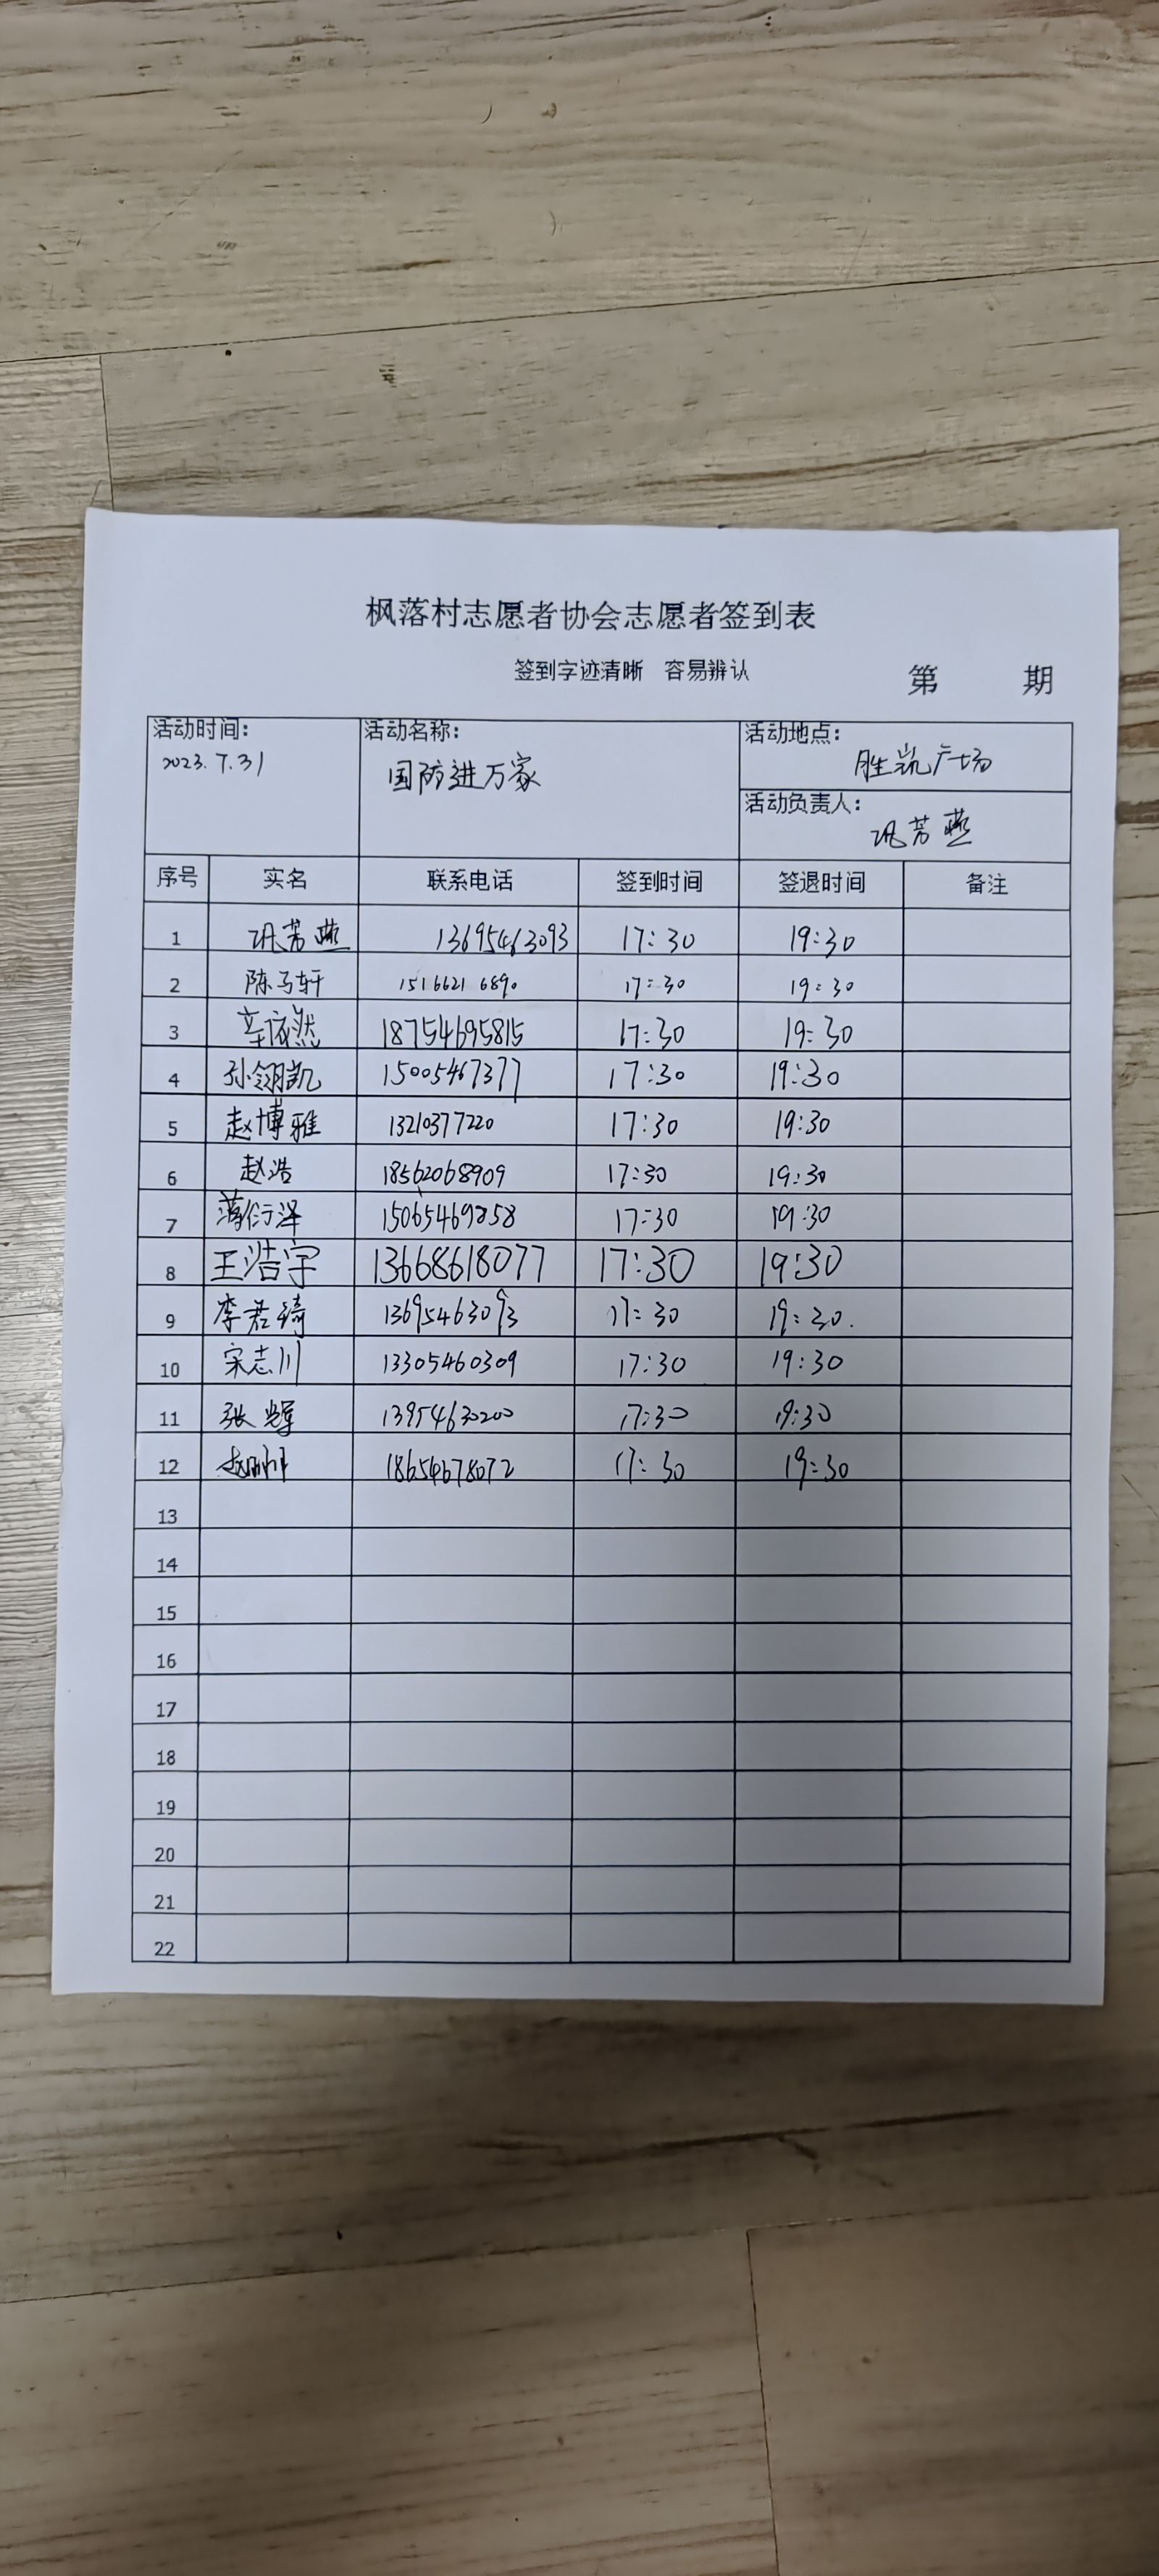 枫落村志愿者协会志愿者签到表
签到字迹清晰 容易辨认
第 期
活动时间: 活动名称: 活动地点:
2023.7.31 国防进万家 胜凯广场
活动负责人:
巩芳燕
序号 实名 联系电话 签到时间 签退时间 备注
1 巩芳燕 13695463093 17:30 19:30
2 陈子轩 15166216890 17:30 19:30
3 辛依然 18754695815 17:30 19:30
4 孙翎凯 15005467377 17:30 19:30
5 赵博雅 13210377220 17:30 19:30
6 赵浩 18562068909 17:30 19:30
7 蒋衍泽 15065469858 17:30 19:30
8 王浩宇 13668618077 17:30 19:30
9 李若琦 13695463093 17:30 19:30.
10 宋志川 13305460309 17:30 19:30
11 张辉 13954630200 17:30 19:30
12 18654678072 17:30 19:30
13
14
15
16
17
18
19
20
21
22